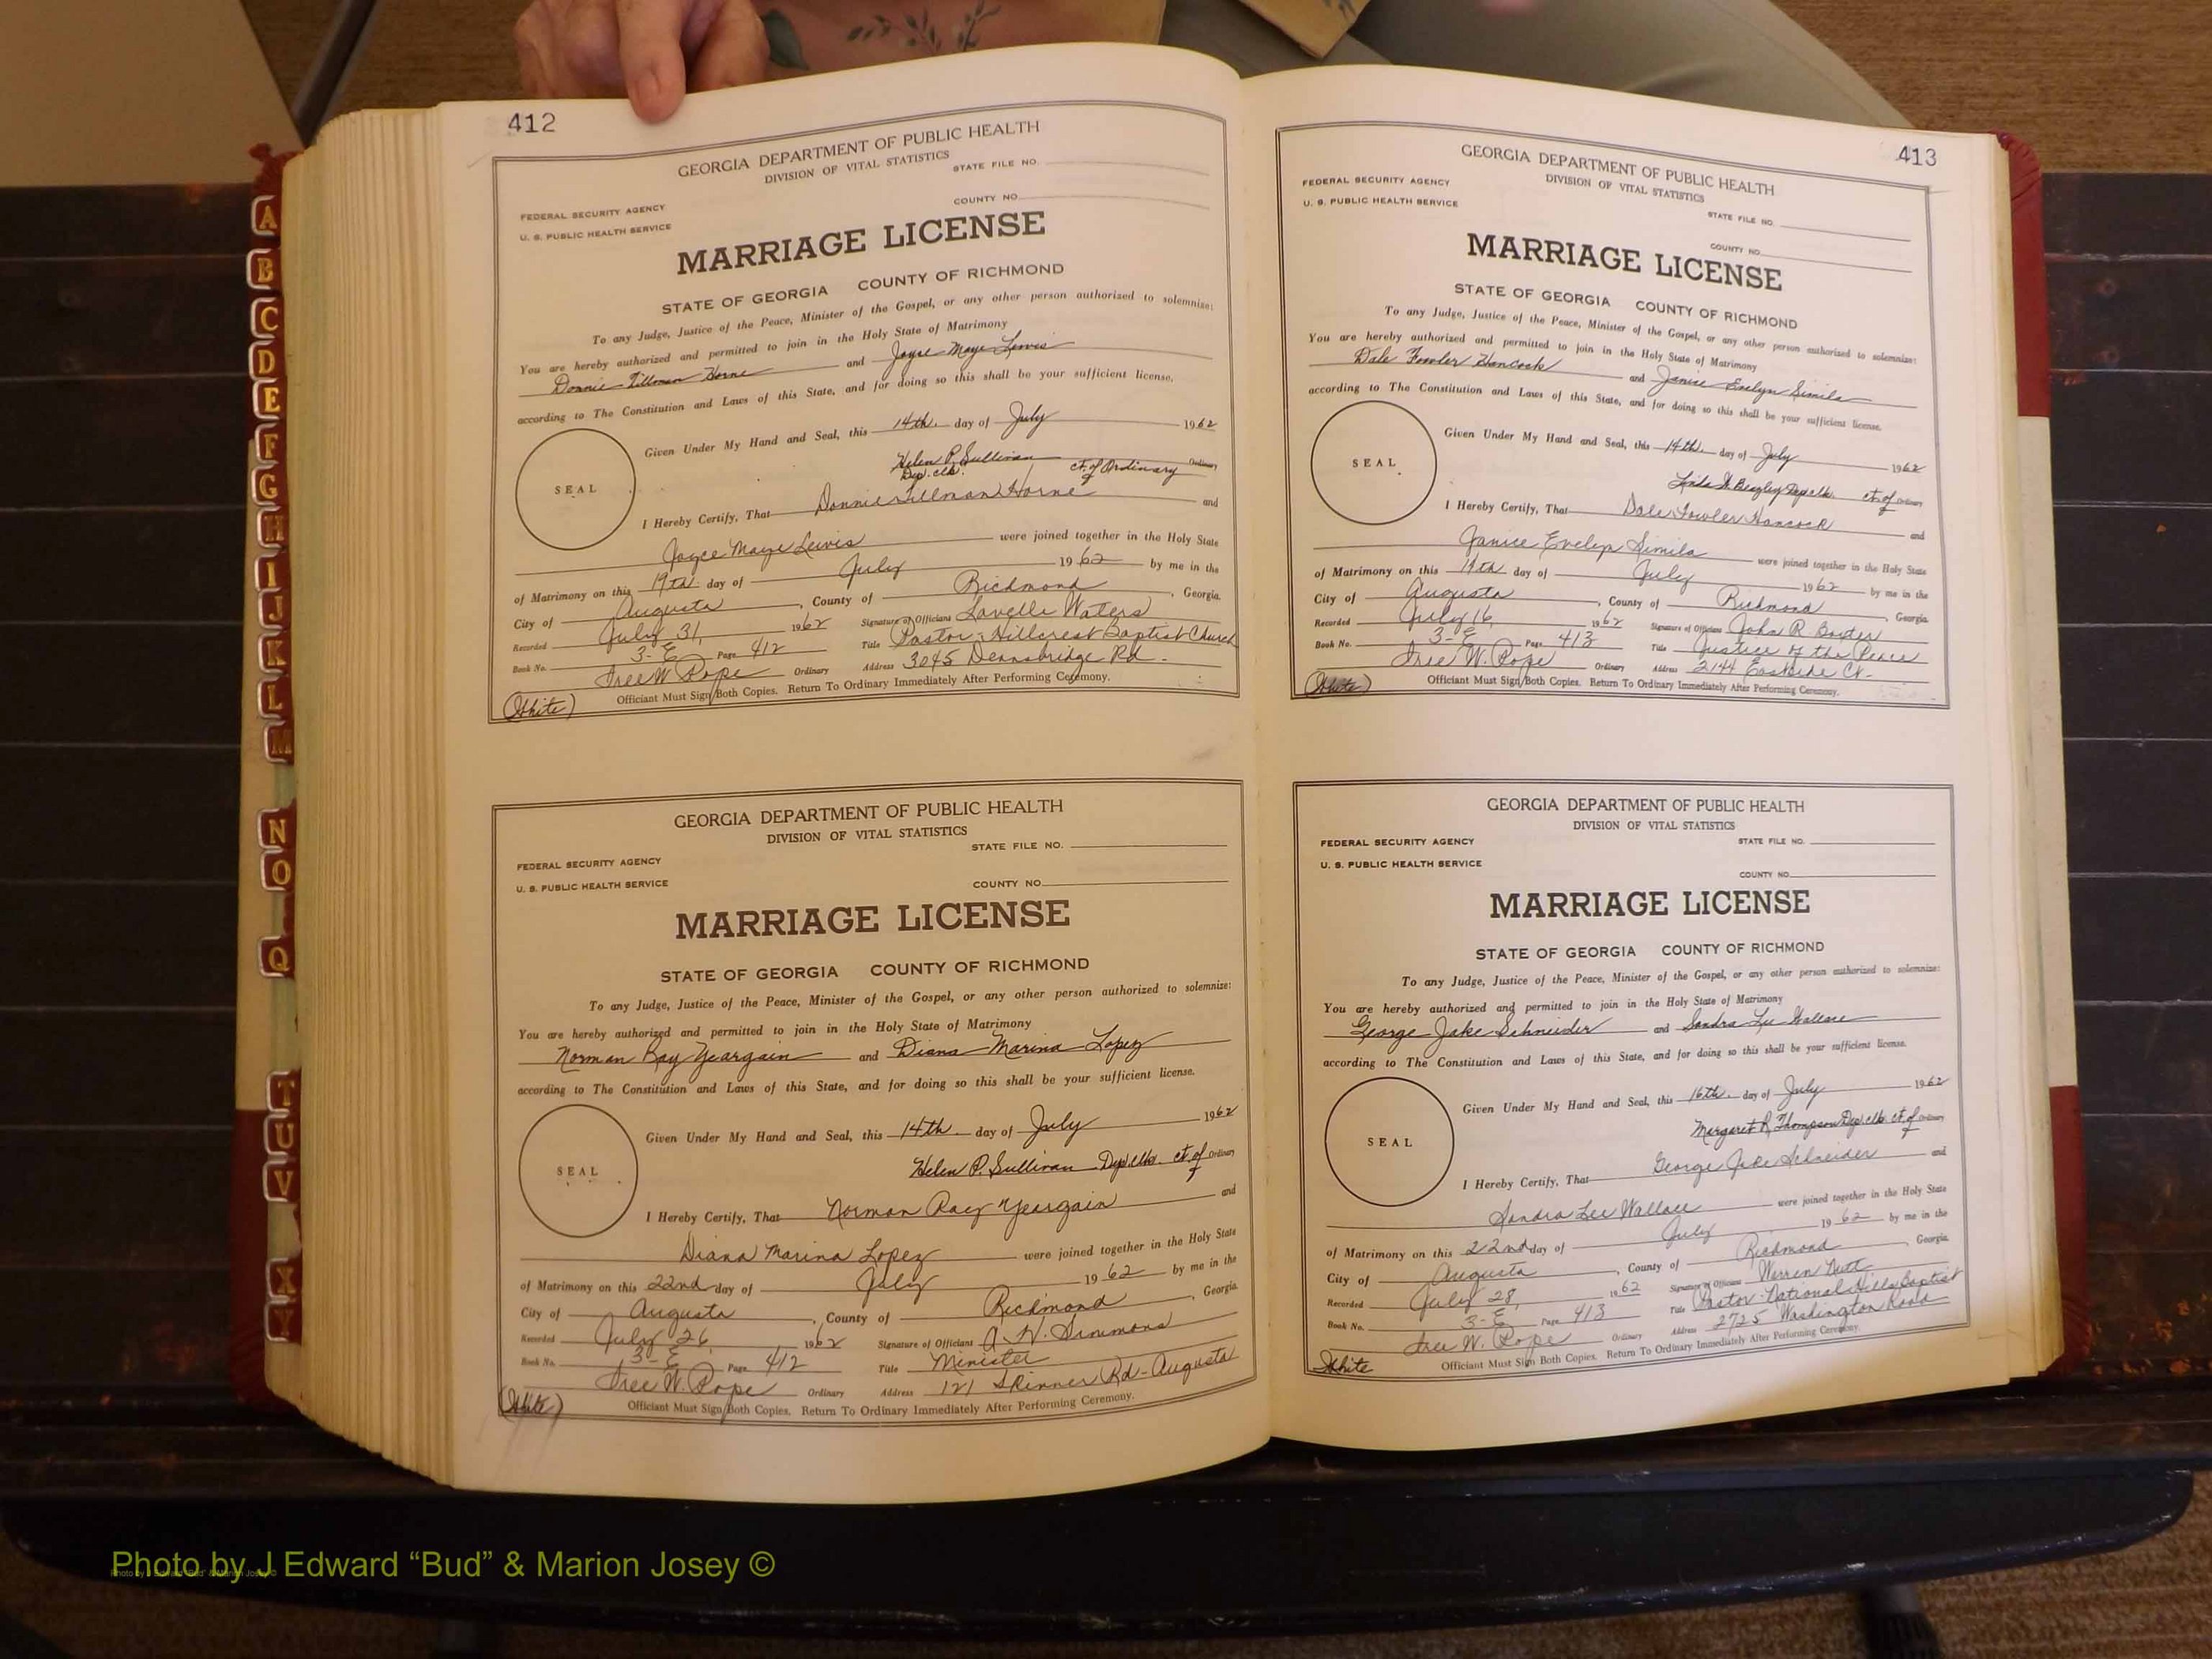 412
GEORGIA DEPARTMENT OF PUBLIC HEALTH
DIVISION OF VITAL STATISTICS
STATE FILE NO.
FEDERAL SECURITY AGENCY
COUNTY NO.
U. S. PUBLIC HEALTH SERVICE
MARRIAGE LICENSE
STATE OF GEORGIA COUNTY OF RICHMOND
To any Judge, Justice of the Peace, Minister of the Gospel, or any other person authorized to solemnize:
You are hereby authorized and permitted to join in the Holy State of Matrimony
Donnie Tillman Horne and Joyce Maye Lewis
according to The Constitution and Laws of this State, and for doing so this shall be your sufficient license.
Given Under My Hand and Seal, this 14th. day of July 1962
SEAL
Helen P. Sullivan
Dep. clk. ct. of Ordinary Ordinary
I Hereby Certify, That Donnie Tillman Horne and
Joyce Maye Lewis were joined together in the Holy State
of Matrimony on this 19th day of July 1962 by me in the
City of Augusta, County of Richmond, Georgia.
Recorded July 31, 1962 Signature of Officiant Lavelle Waters
Book No. 3-E Page 412 Title Pastor - Hillcrest Baptist Church
W. Pope Ordinary Address 3045 Rd.
(White) Officiant Must Sign Both Copies. Return To Ordinary Immediately After Performing Ceremony.
GEORGIA DEPARTMENT OF PUBLIC HEALTH
DIVISION OF VITAL STATISTICS
STATE FILE NO.
FEDERAL SECURITY AGENCY
U. S. PUBLIC HEALTH SERVICE
COUNTY NO.
MARRIAGE LICENSE
STATE OF GEORGIA COUNTY OF RICHMOND
To any Judge, Justice of the Peace, Minister of the Gospel, or any other person authorized to solemnize:
You are hereby authorized and permitted to join in the Holy State of Matrimony
Norman Ray Yeargain and Diana Marina Lopez
according to The Constitution and Laws of this State, and for doing so this shall be your sufficient license.
Given Under My Hand and Seal, this 14th day of July 1962
SEAL
Helen P. Sullivan Dep. clk. ct. of Ordinary
I Hereby Certify, That Norman Ray Yeargain and
Diana Marina Lopez were joined together in the Holy State
of Matrimony on this 22nd day of July 1962 by me in the
City of Augusta, County of Richmond, Georgia.
Recorded July 26, 1962 Signature of Officiant A. W. Simmons
Book No. 3-E Page 412 Title Minister
W. Pope Ordinary Address 121 Skinner Rd - Augusta
(White) Officiant Must Sign Both Copies. Return To Ordinary Immediately After Performing Ceremony.
413
GEORGIA DEPARTMENT OF PUBLIC HEALTH
DIVISION OF VITAL STATISTICS
FEDERAL SECURITY AGENCY
U. S. PUBLIC HEALTH SERVICE
STATE FILE NO.
COUNTY NO.
MARRIAGE LICENSE
STATE OF GEORGIA COUNTY OF RICHMOND
To any Judge, Justice of the Peace, Minister of the Gospel, or any other person authorized to solemnize:
You are hereby authorized and permitted to join in the Holy State of Matrimony
Dale Fowler Hancock and Janice Evelyn Simila
according to The Constitution and Laws of this State, and for doing so this shall be your sufficient license.
Given Under My Hand and Seal, this 14th. day of July 1962
SEAL
Linda W. Beazley Dep clk. ct. of Ordinary
I Hereby Certify, That Dale Fowler Hancock and
Janice Evelyn Simila were joined together in the Holy State
of Matrimony on this 14th day of July 1962 by me in the
City of Augusta, County of Richmond, Georgia.
Recorded July 16, 1962 Signature of Officiant John R
Book No. 3-E Page 413 Title Justice of the Peace
W. Pope Ordinary Address 2144 Eastside Ct.
(White) Officiant Must Sign Both Copies. Return To Ordinary Immediately After Performing Ceremony.
GEORGIA DEPARTMENT OF PUBLIC HEALTH
DIVISION OF VITAL STATISTICS
FEDERAL SECURITY AGENCY STATE FILE NO.
U. S. PUBLIC HEALTH SERVICE
COUNTY NO.
MARRIAGE LICENSE
STATE OF GEORGIA COUNTY OF RICHMOND
To any Judge, Justice of the Peace, Minister of the Gospel, or any other person authorized to solemnize:
You are hereby authorized and permitted to join in the Holy State of Matrimony
George Jake Schneider and Sandra Lee Wallace
according to The Constitution and Laws of this State, and for doing so this shall be your sufficient license.
Given Under My Hand and Seal, this 16th. day of July 1962
SEAL
Margaret R. Thompson Dep. clk. ct. of Ordinary
I Hereby Certify, That George Jake Schneider and
Sandra Lee Wallace were joined together in the Holy State
of Matrimony on this 22nd day of July 1962 by me in the
City of Augusta, County of Richmond, Georgia
Recorded July 28, 1962 Signature of Officiant Warren
Book No. 3-E Page 413 Title Pastor - National Hills Baptist
W. Pope Ordinary Address 2725 Washington Road
White Officiant Must Sign Both Copies. Return To Ordinary Immediately After Performing Ceremony.
A
B
C
D
E
F
G
H
I
J
K
L
M
N
O
Q
T
U
V
X
Y
Photo by J Edward “Bud” & Marion Josey ©
Photo by J Edward "Bud" & Marion Josey ©